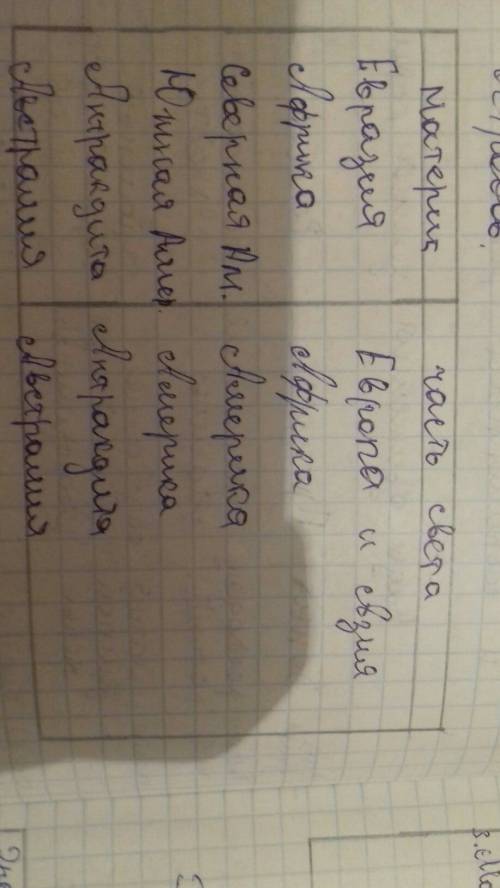 Материц часть света
Евразия Европы и Азия
Африка Африка
Северная Ам. Америка
Южная Амер. Америка
Антрактита Антрактита
Австралия Австралия